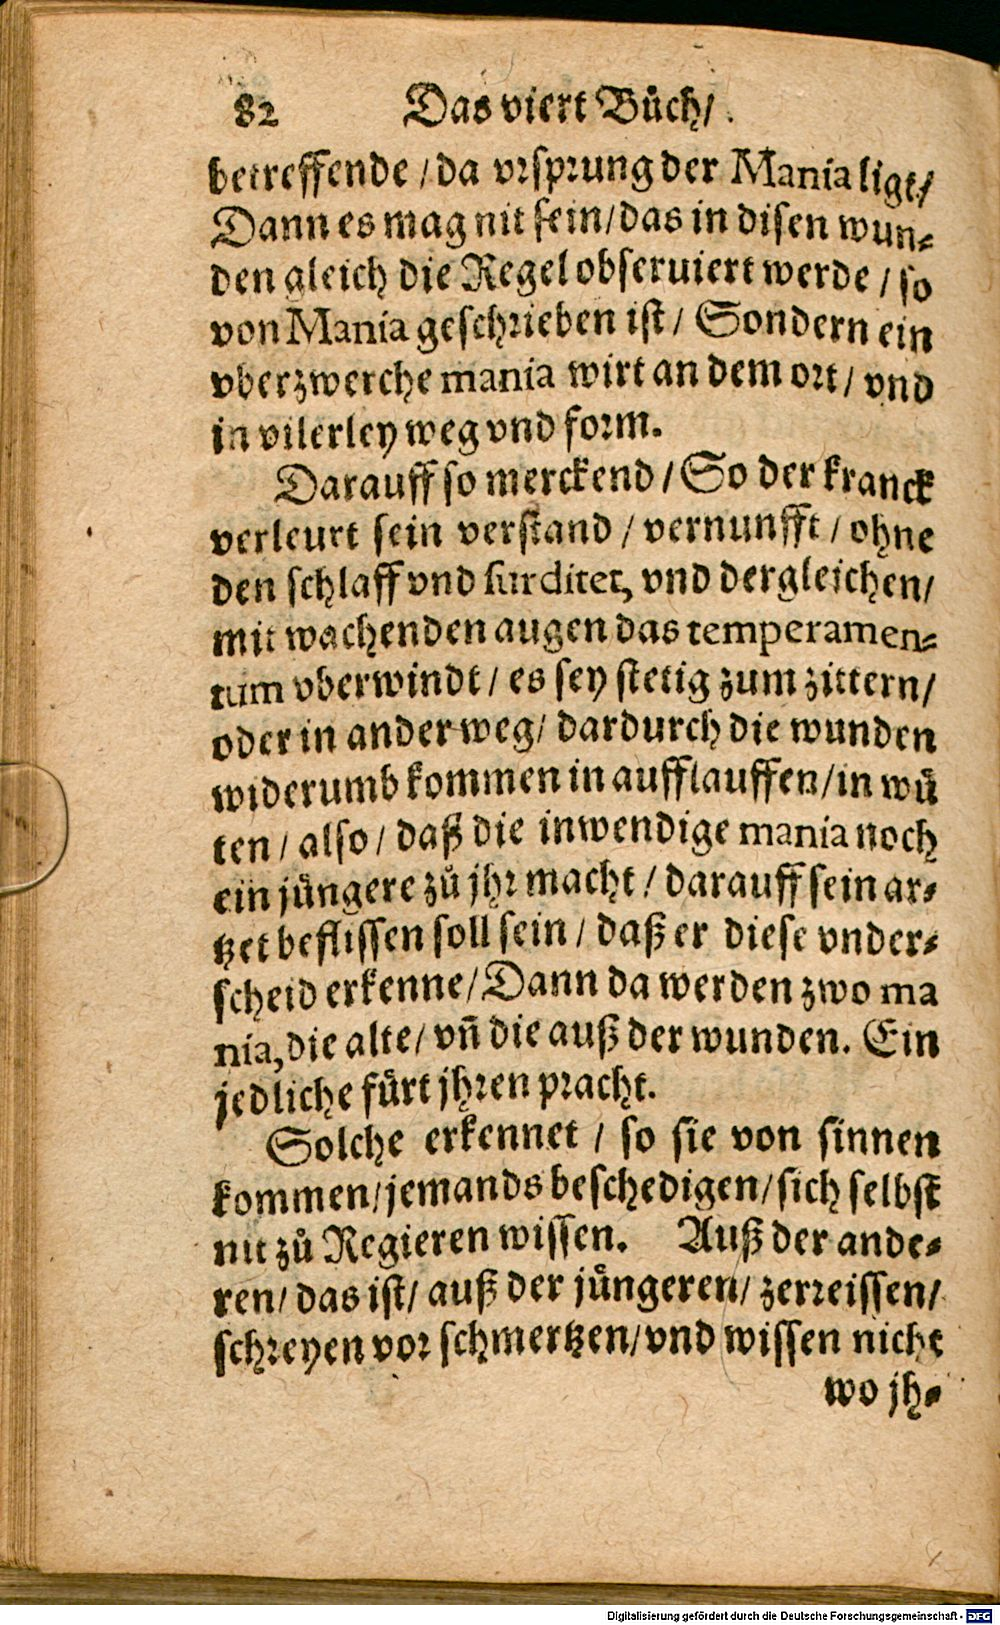 82 Das viert Bůch/
betreffende / da vrsprung der Mania ligt/
Dann es mag nit sein/das in disen wun-
den gleich die Regel obseruiert werde / so
von Mania geschrieben ist / Sondern ein
vberzwerche mania wirt an dem ort / vnd
in vilerley weg vnd form.
Darauff so merckend / So der kranck
verleurt sein verstand / vernunfft / ohne
den schlaff vnd surditet, vnd dergleichen/
mit wachenden augen das temperamen-
tum vberwindt / es sey stetig zum zittern/
oder in ander weg/ dardurch die wunden
widerumb kommen in aufflauffen/in wů
ten / also / daß die inwendige mania noch
ein jüngere zů jhr macht / darauff sein ar-
tzet beflissen soll sein / daß er diese vnder-
scheid erkenne/Dann da werden zwo ma
nia, die alte/ vñ die auß der wunden. Ein
jedliche fůrt jhren pracht.
Solche erkennet / so sie von sinnen
kommen/jemands beschedigen/sich selbst
nit zů Regieren wissen. Auß der ande-
ren/ das ist/ auß der jüngeren/ zerreissen/
schreyen vor schmertzen/vnd wissen nicht
wo jh-
Digitalisierung gefördert durch die Deutsche Forschungsgemeinschaft - DFG